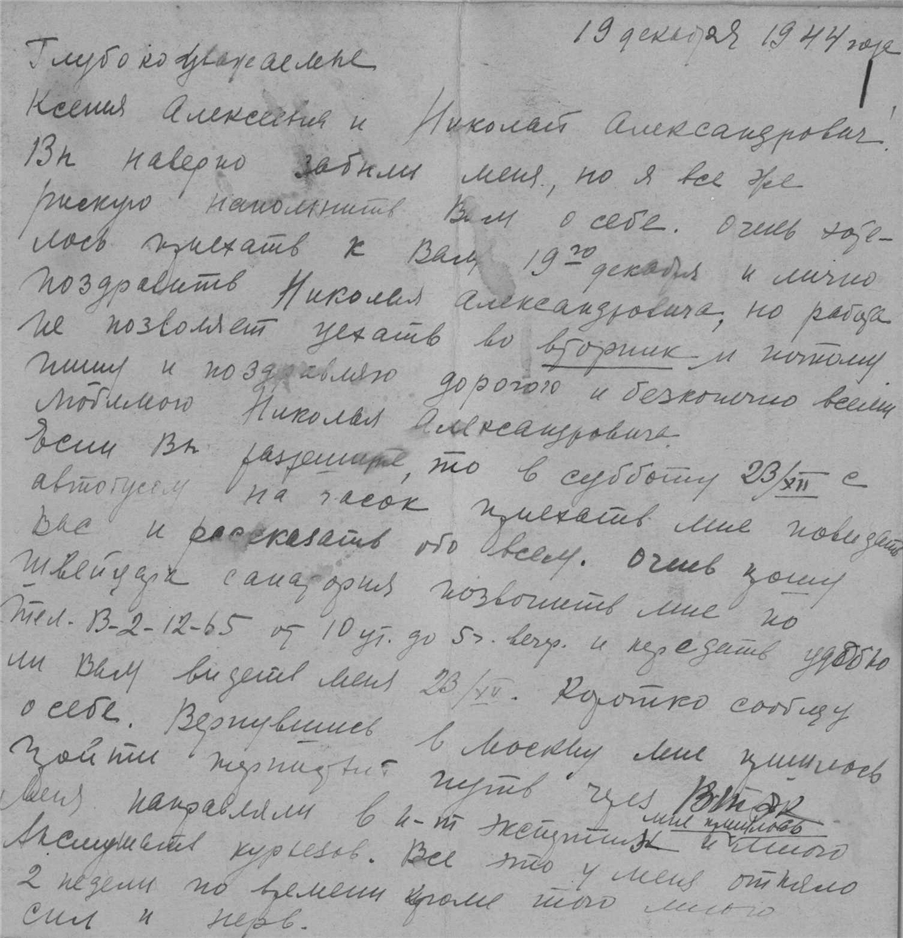 19 декабря 1944 года
Глубокоуважаемые
Ксения Алексеевна и Николай Александрович!
Вы наверно забыли меня, но я все же
рискую напомнить Вам о себе. Очень хоте-
лось приехать к Вам 19го декабря и лично
поздравить Николая Александровича, но работа
не позволяет уехать во вторник и потому
пишу и поздравляю дорогого и безконечно всеми
любимого Николая Александровича.
Если Вы разрешите, то в субботу 23/XII с
автобусом на часок приехать мне повидать
Вас и рассказать обо всем. Очень прошу
швейцара санатория позвонить мне по
тел. В-2-12-65 от 10 ут. до 5 ч. вечр. и передать удобно
ли Вам видеть меня 23/XII. Коротко сообщу
о себе. Вернувшись в Москву мне пришлось
пройти путь через ВТЭК
меня направляли в и-т экспертизы и мне пришлось много
выслушать курьезов. Все это у меня отняло
2 недели по времени кроме того много
сил и нерв.